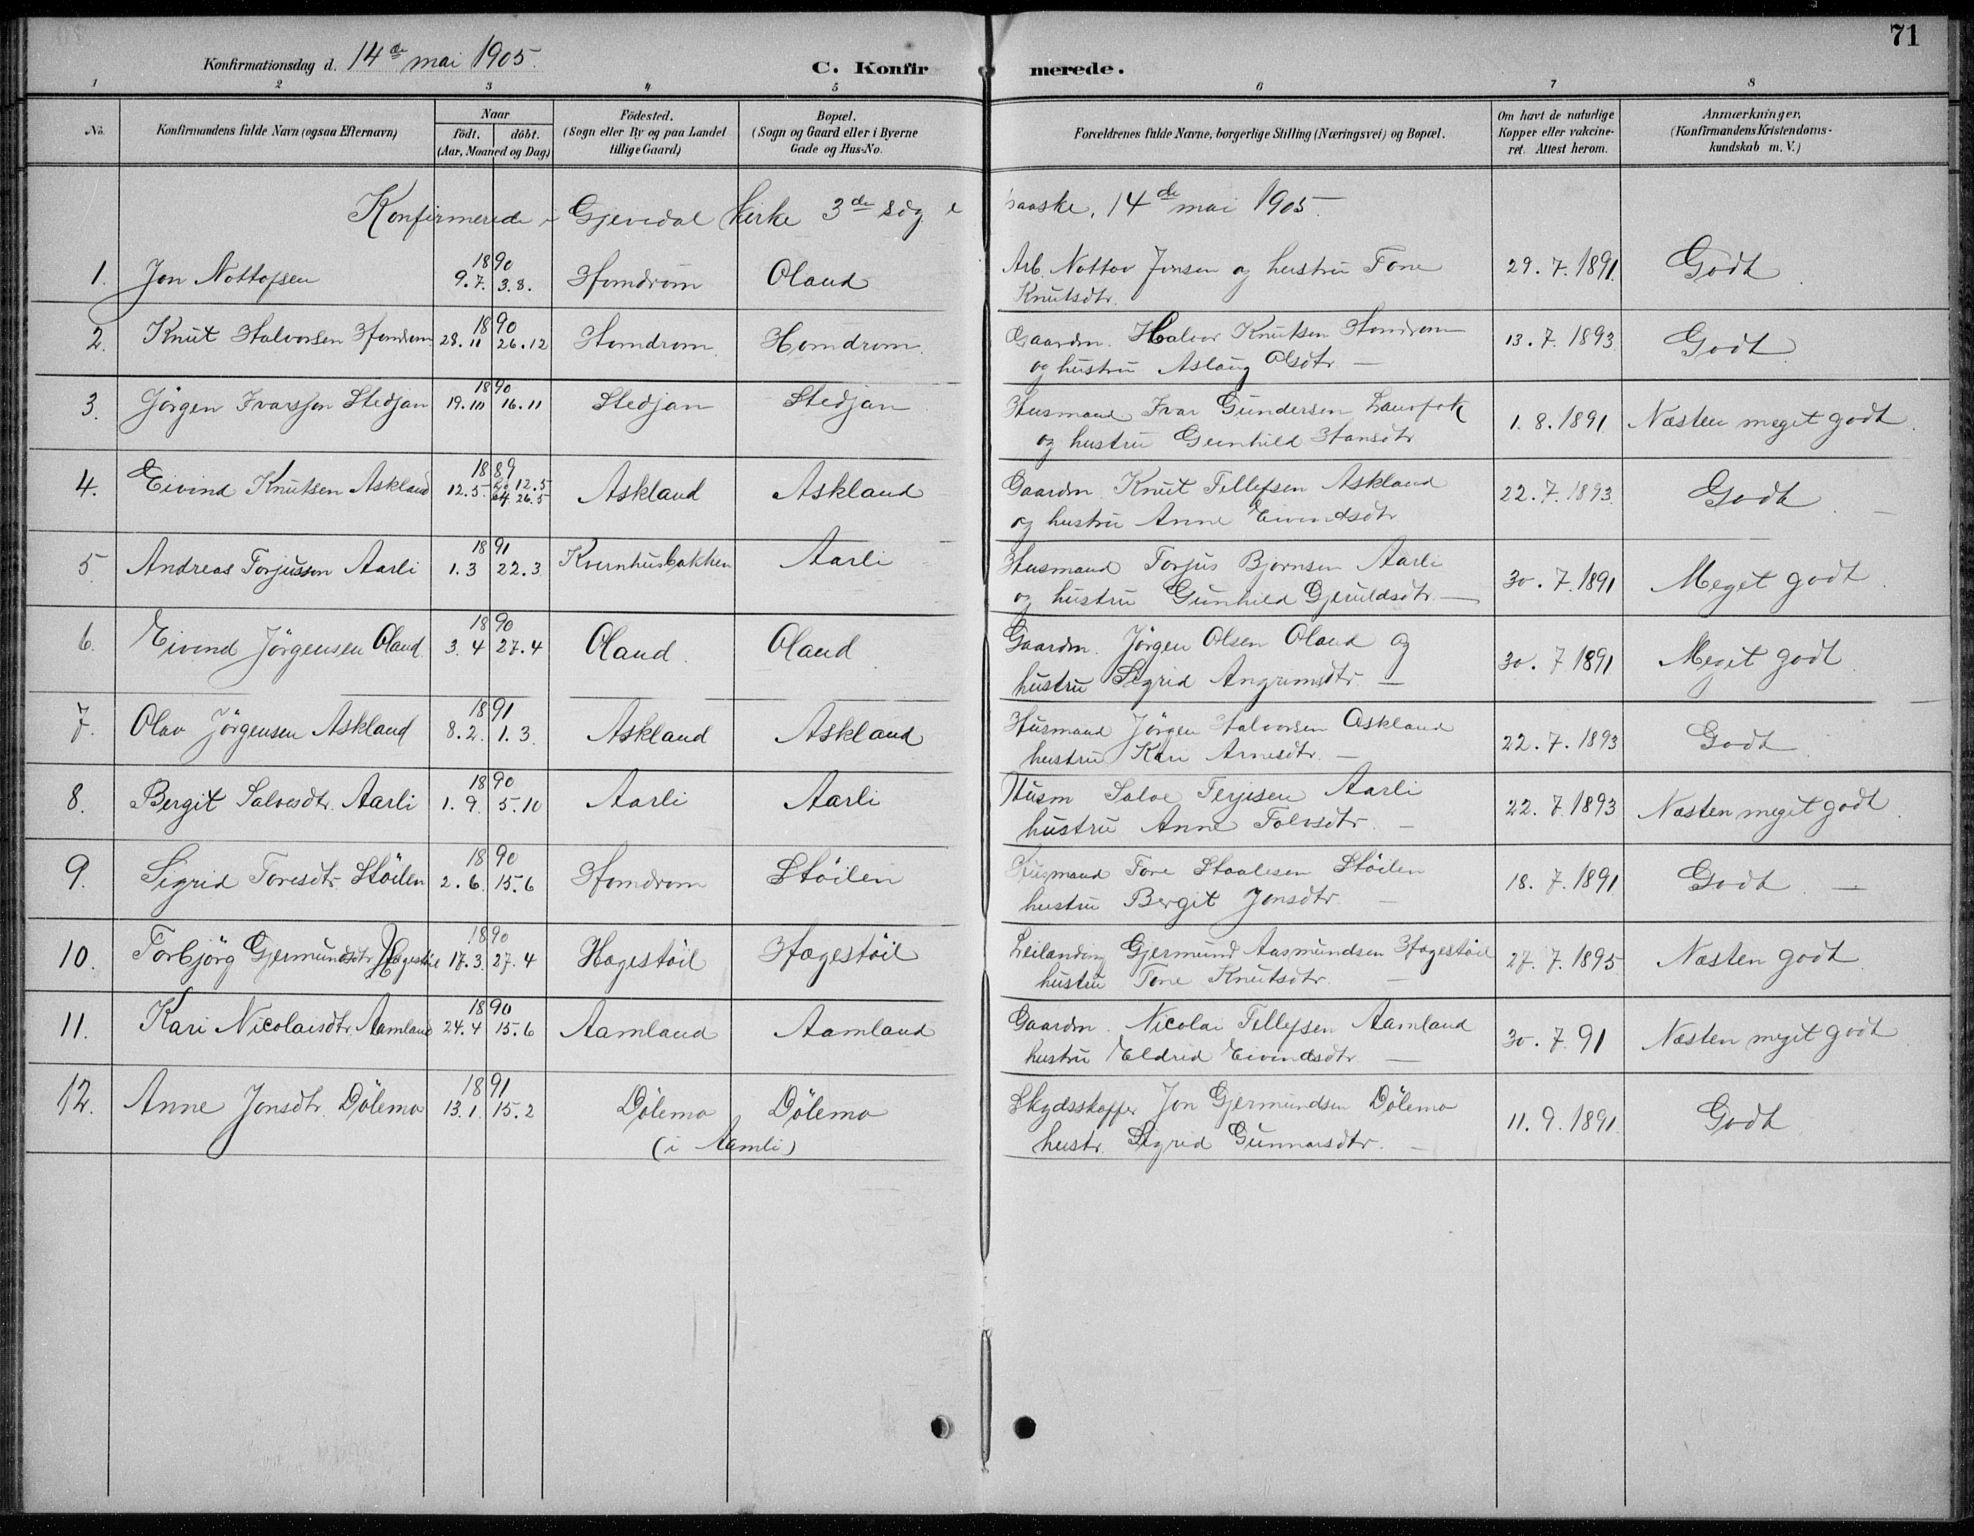 71
Konfirmationsdag d. 14de mai 1905.
C. Konfirmerede.
1 2 3 4 5 6 7 8
No. Konfirmandens fulde Navn (ogsaa Efternavn) Naar født. døbt. (Aar, Maaned og Dag) Födested. (Sogn eller By og paa Landet tillige Gaard) Bopæl. (Sogn og Gaard eller i Byerne Gade og Hus-No. Forældrenes fulde Navne, borgerlige Stilling (Næringsvei) og Bopæl. Om havt de naturlige Kopper eller vakcineret. Attest herom. Anmærkninger. (Konfirmandens Kristendomskundskab m. V.)
Konfirmerede i Gjevedal kirke 3de søg e paaske, 14de mai 1905.
1. Jon Nottofsen 1890 9.7. 3.8. Homdrom Oland Arb. Nottov Jonsen og hustru Tone 29.7.1891 Godt
Knutsdtr.
2. Knut Halvorsen Homdrom 1890 28.11 26.12 Homdrom Homdrom Gaardm. Halvor Knutsen Homdrom 13.7.1893 Godt
og hustru Aslaug Olsdtr —
3. Jörgen Ivarssen Stedjan 1890 19.10 16.11 Stedjan Stedjan Husmand Ivar Gundersen 1.8.1891 Næsten meget godt.
og hustru Gunhild Hansdtr
4. Eivind Knutsen Askland 1889 12.5. 12.5 26.5 Askland Askland Gaardm. Knut Tellefsen Askland 22.7.1893 Godt
og hustru Anne Eivindsdtr
5. Andreas Torjussen Aarli 1891 1.3 22.3 Kvernhusbakken Aarli Husmand Torjus Bjornsen Aarli 30.7.1891 Meget godt
og hustru Gunhild Gjeruldsdtr. —
6. Eivind Jörgensen Oland 1890 3.4 27.4 Oland Oland Gaardm. Jörgen Olsen Oland og 30.7 1891 Meget godt
hustru Sigrid Angrimsdtr. —
7. Olav Jörgensen Askland 1891 8.2. 1.3. Askland Askland Husmand Jörgen Halvorsen Askland 22.7.1893 Godt
hustru Kari Arnesdtr. —
8. Bergit Salvesdtr. Aarli 1890 1.9. 5.10 Aarli Aarli Husm Salve Terjesen Aarli 22.7.1893 Næsten meget godt.
hustru Anne Tolvsdtr. —
9. Sigrid Toresdtr. Stöilen 1890 2.6. 15.6 Homdrom Stöilen Husmand Tore Staalesen Stöilen 18.7.1891 Godt. —
hustru Bergit Jonsdtr. —
10. Torbjörg Gjermundsdtr Hagestöil 1890 17.3. 27.4 Hagestöil Hagestöil Leilænding Gjermund Aasmundsen Hagestöil 27.7.1895 Næsten godt.
hustru Tone Knutsdtr. —
11. Kari Nicolaisdtr. Aamland 1890 24.4 15.6 Aamland Aamland Gaardm. Nicolai Tellefsen Aamland 30.7.91 Næsten meget godt
hustru Eldrid Eivindsdtr. —
12. Anne Jonsdtr. Dölemo 1891 13.1. 15.2 Dölemo Dölemo Skydsskaffer Jon Gjermundsen Dölemo 11.9.1891 Godt
(i Aamli) hustr. Sigrid Gunnarsdtr. —